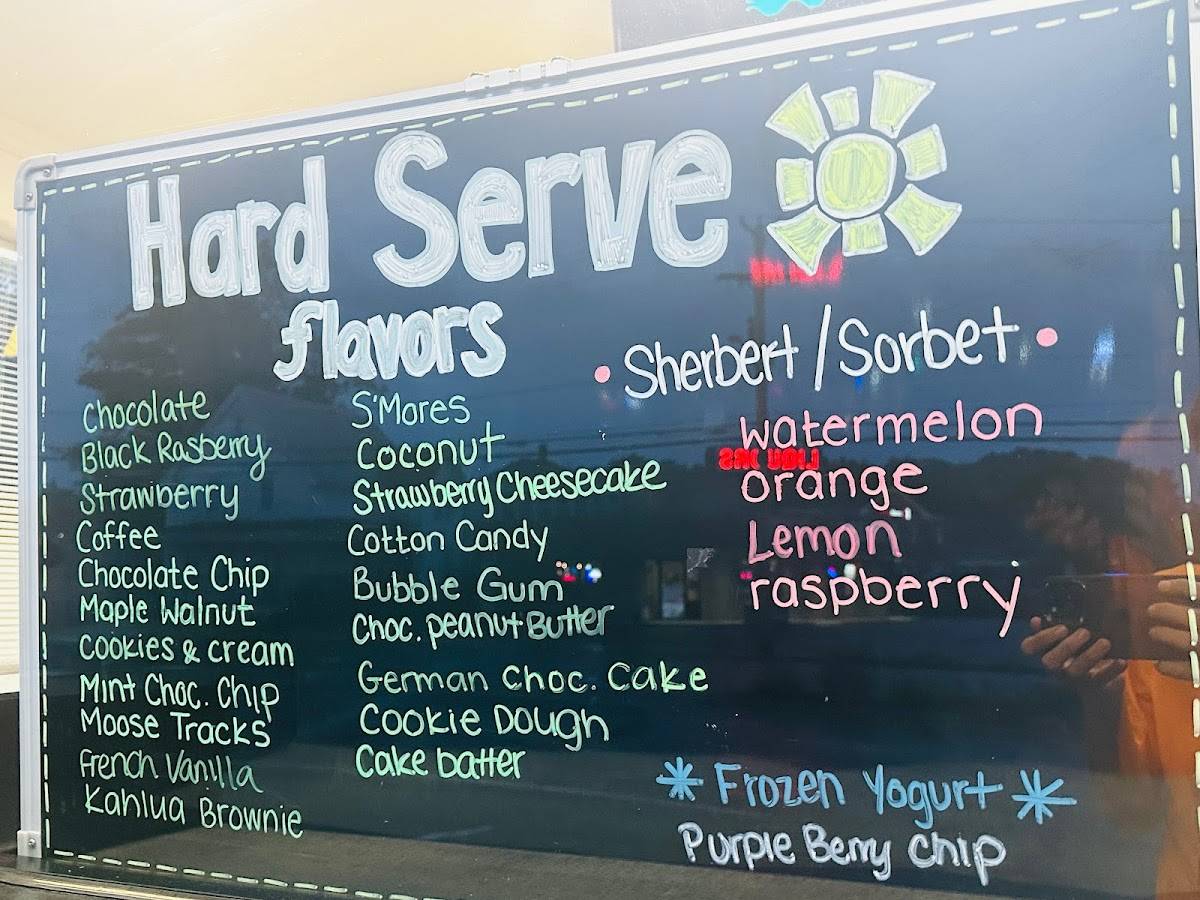 Hard Serve
flavors
Chocolate
Black Rasberry
Strawberry
Coffee
Chocolate Chip
Maple Walnut
Cookies & cream
Mint Choc. Chip
Moose Tracks
French Vanilla
Kahlua Brownie
S'Mores
Coconut
Strawberry Cheesecake
Cotton Candy
Bubble Gum
Choc. peanut Butter
German Choc. Cake
Cookie Dough
Cake batter
• Sherbert / Sorbet •
watermelon
orange
Lemon
raspberry
* Frozen Yogurt *
Purple Berry Chip